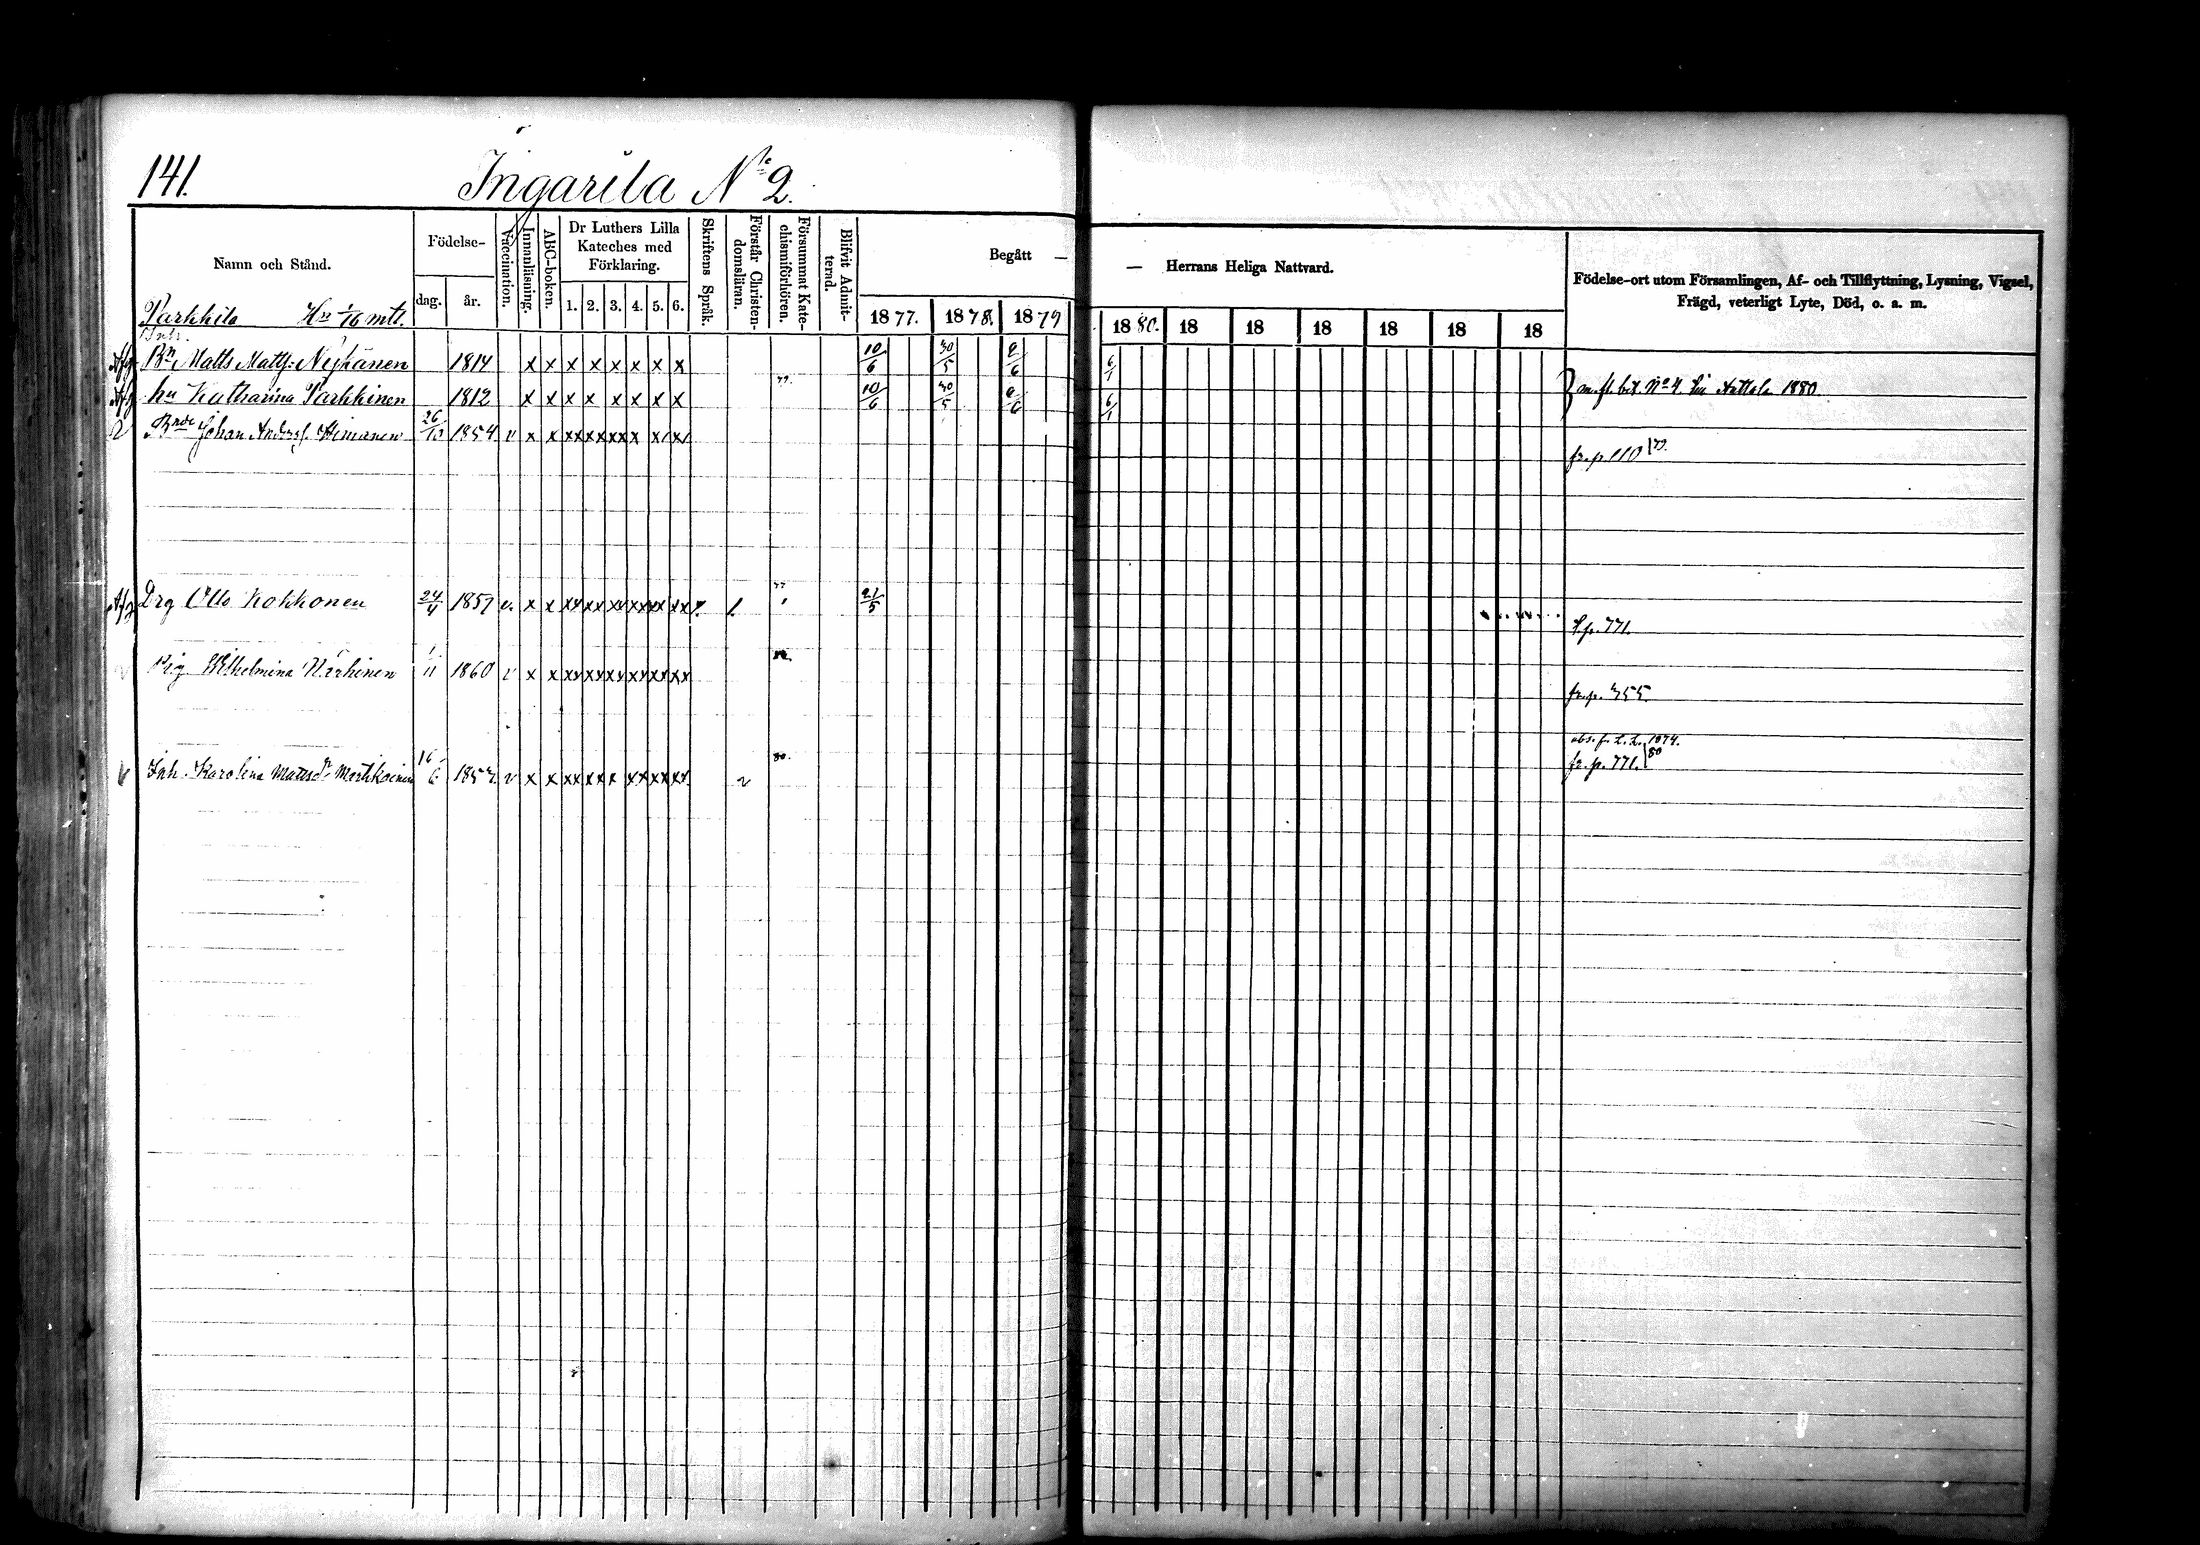 141.
Ingarila No 2.
Namn och Stånd.
Födelse-
dag.
år.
Vaccination.
Innanläsning.
ABC-boken.
Dr Luthers Lilla
Kateches med
Förklaring.
1. 2. 3. 4. 5. 6.
Skriftens Språk.
Förstår Christen-
domsläran.
Försummat Kate-
chismiförhören.
Blifvit Admit-
terad.
Begått —
— Herrans Heliga Nattvard.
1877. 1878. 1879 1880. 18 18 18 18 18 18
Födelse-ort utom Församlingen, Af- och Tillflyttning, Lysning, Vigsel,
Frägd, veterligt Lyte, Död, o. a. m.
Parkkila Hn 1/16 mtl.
Matts Matts: Nykänen 1814 x x x x x x x x 10/6 30/5 6/1
hu Katharina Parkkinen 1812 x x x x x x x x 10/6 30/5 6/1
Johan Anders 26 1854 v x x xx xx xx x x x
fr. p. 110
Drg Otto Kokkonen 24/4 1857 v. x x xx xx xx xx xx xx 21/5
p. 771.
Pig. Wilhelmina 11 1860 v x x xx xx xx xx xx xx
fr. p. 755.
1874.
Inh. Karolina Mattsdr 16/6 v x x xx xx x xx xx xx 80.
fr. p. 771. 80